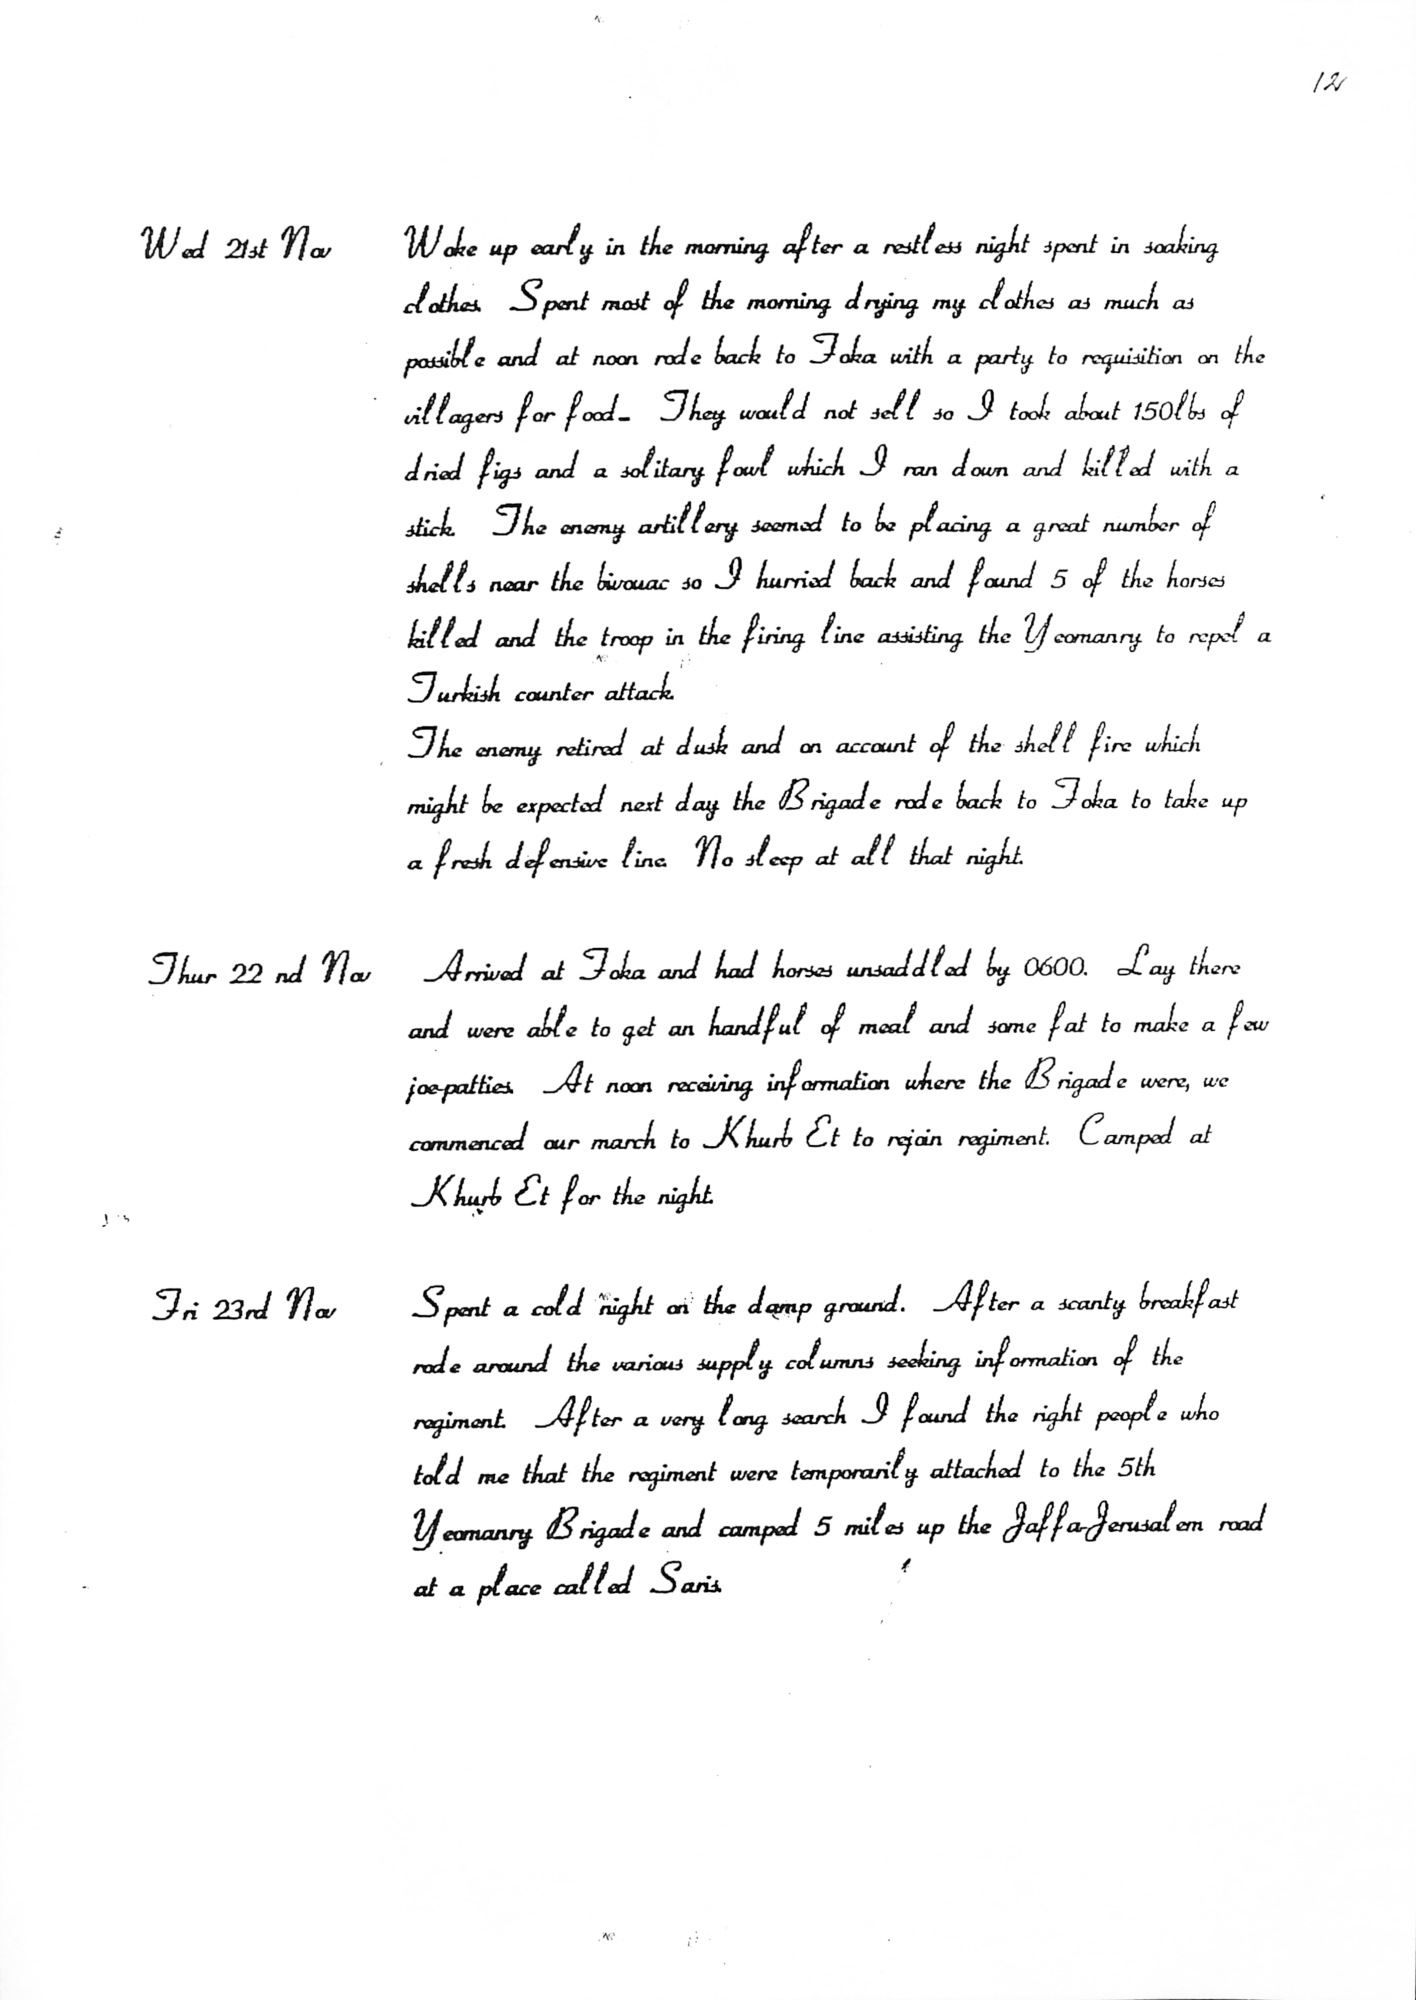 12
Wed 21st Nov Woke up early in the morning after a restless night spent in soaking
clothes. Spent most of the morning drying my clothes as much as
possible and at noon rode back to Foka with a party to requisition on the
villagers for food_ They would not sell so I took about 150lbs of
dried figs and a solitary fowl which I ran down and killed with a
stick. The enemy artillery seemed to be placing a great number of
shells near the bivouac so I hurried back and found 5 of the horses
killed and the troop in the firing line assisting the Yeomanry to repel a
Turkish counter attack.
The enemy retired at dusk and on account of the shell fire which
might be expected next day the Brigade rode back to Foka to take up
a fresh defensive line. No sleep at all that night.
Thur 22 nd Nov Arrived at Foka and had horses unsaddled by 0600. Lay there
and were able to get an handful of meal and some fat to make a few
joe-patties. At noon receiving information where the Brigade were, we
commenced our march to Khurb Et to rejoin regiment. Camped at
Khurb Et for the night.
Fri 23rd Nov Spent a cold night on the damp ground. After a scanty breakfast
rode around the various supply columns seeking information of the
regiment. After a very long search I found the right people who
told me that the regiment were temporarily attached to the 5th
Yeomanry Brigade and camped 5 miles up the Jaffa-Jerusalem road
at a place called Saris.